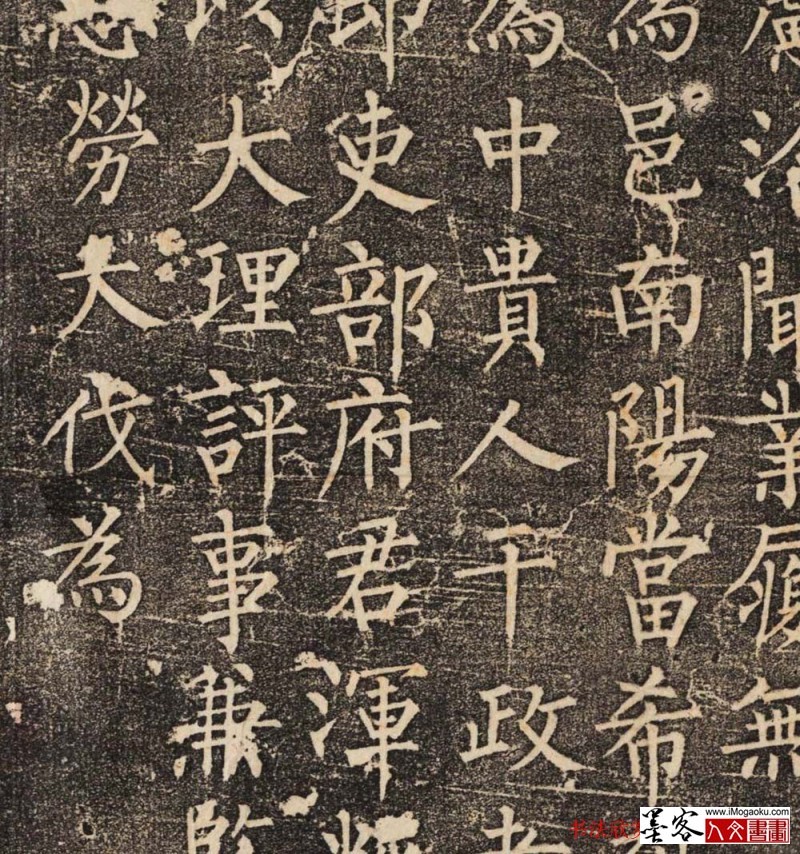 聞業履無
為邑南陽當希
為中貴人干政者
郎吏部府君渾
以大理評事兼監
勞大伐為
www.iMogaoku.com
墨客
人文書畫